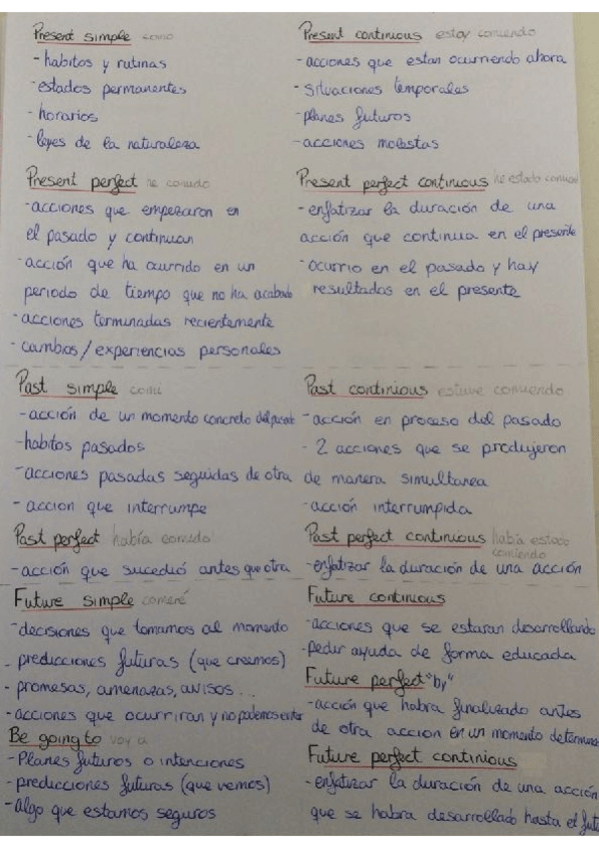 Present simple como
- habitos y rutinas
- estados permanentes
- horarios
- leyes de la naturaleza
Present continuous estoy comiendo
- acciones que estan ocurriendo ahora
- situaciones temporales
- planes futuros
- acciones molestas
Present perfect he comido
- acciones que empezaron en
el pasado y continuan
- acción que ha ocurrido en un
periodo de tiempo que no ha acabado
- acciones terminadas recientemente
- cambios / experiencias personales
Present perfect continuous he estado comiendo
- enfatizar la duración de una
acción que continua en el presente
- ocurrio en el pasado y hay
resultados en el presente
Past simple comí
- acción de un momento concreto del pasado
- habitos pasados
- acciones pasadas seguidas de otra
- accion que interrumpe
Past continious estuve comiendo
- acción en proceso del pasado
- 2 acciones que se produjeron
de manera simultanea
- acción interrumpida
Past perfect había comido
- acción que sucedió antes que otra
Past perfect continuous había estado
comiendo
- enfatizar la duración de una acción
Future simple comeré
- decisiones que tomamos al momento
- predicciones futuras (que creemos)
- promesas, amenazas, avisos...
- acciones que ocurriran y no podemos evitar
Be going to voy a
- Planes futuros o intenciones
- predicciones futuras (que vemos)
- Algo que estamos seguros
Future continuous
- acciones que se estaran desarrollando
- pedir ayuda de forma educada
Future perfect "by"
- acción que habra finalizado antes
de otra accion en un momento
Future perfect continious
- enfatizar la duración de una acción
que se habra desarrollado hasta el